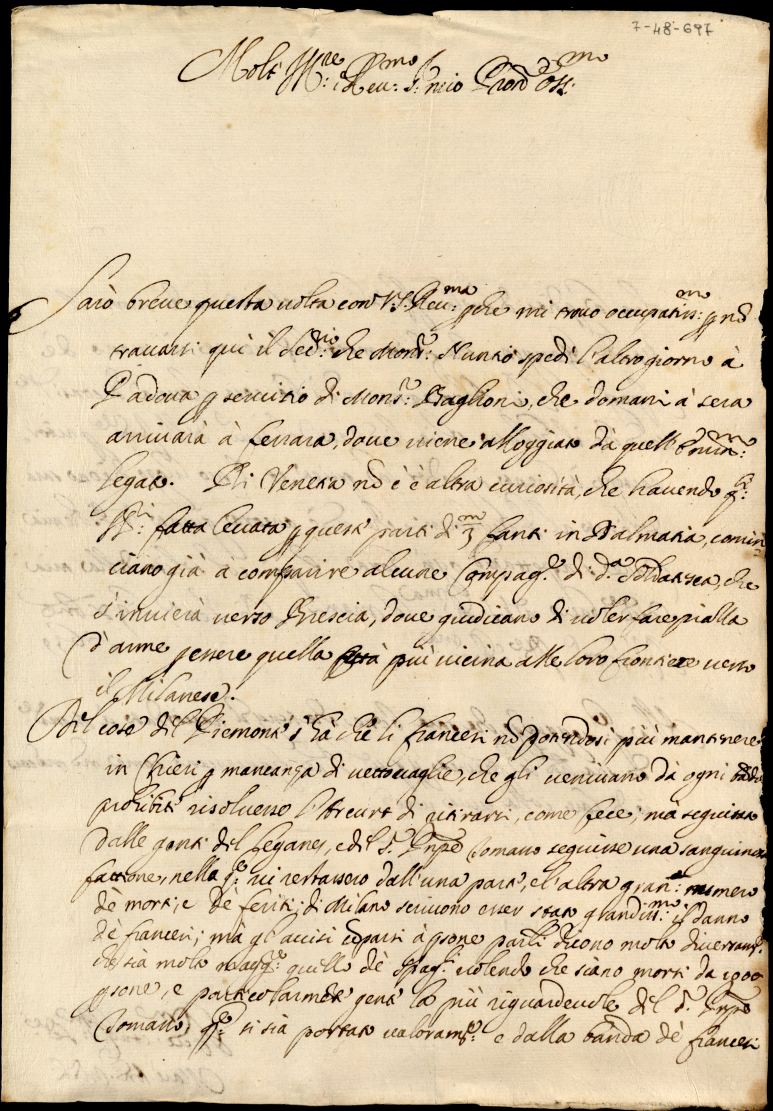 7-48-697
Molt' Ill.re e Reu.mo S.r mio Pron Oss.mo
Sarò breue questa uolta con V.S. Reu.ma perche mi trouo occupatiss.mo per nō
trouarsi qui il Seg.rio che Mons.r Nuntio spedì l'altro giorno à
Padoua p seruitio di Mons.r Baglioni, che domani à sera
arriuarà à ferrara, doue uiene alloggiato dà quell'
legato. Di Venetia nō c'è altra curiosità, che hauendo
fatta leuata p queste parti di fanti in Dalmatia, comin
ciano già à comparire alcune Compag.e di d.a Soldatesca, che
s'inuierà uerso Brescia, doue giudicano di uoler fare piazza
d'arme p essere quella più uicina alle loro frontiere uerso
il Milanese.
Del cose del Piemonte s'hà che li francesi nō potendosi più mantenere
in Chieri p mancanza di uettouaglie, che gli ueniuano dà ogni banda
prohibite risoluesse l'Arcurt di ritirarsi, come fece; mà seguitato
dalle genti del Leganes, e del S.r Prnpe Tomaso seguisse una sanguinosa
fattione, nella q.le ui restassero dall'una parte, e l'altra gran numero
dè morti, e dè feriti: di Milano scriuono esser stato grandiss.mo il danno
dè francesi; mà gl'auuisi comparsi à psone parlano molto diuersam.te
che sia molto magg.re quello dè Spag.li uolendo che siano morti da 1900
psone, e particolarmēte gente la più riguardeuole del S.r Prnpe
Tomaso, q.le si sia portato ualorosam.te e dalla banda dè francesi